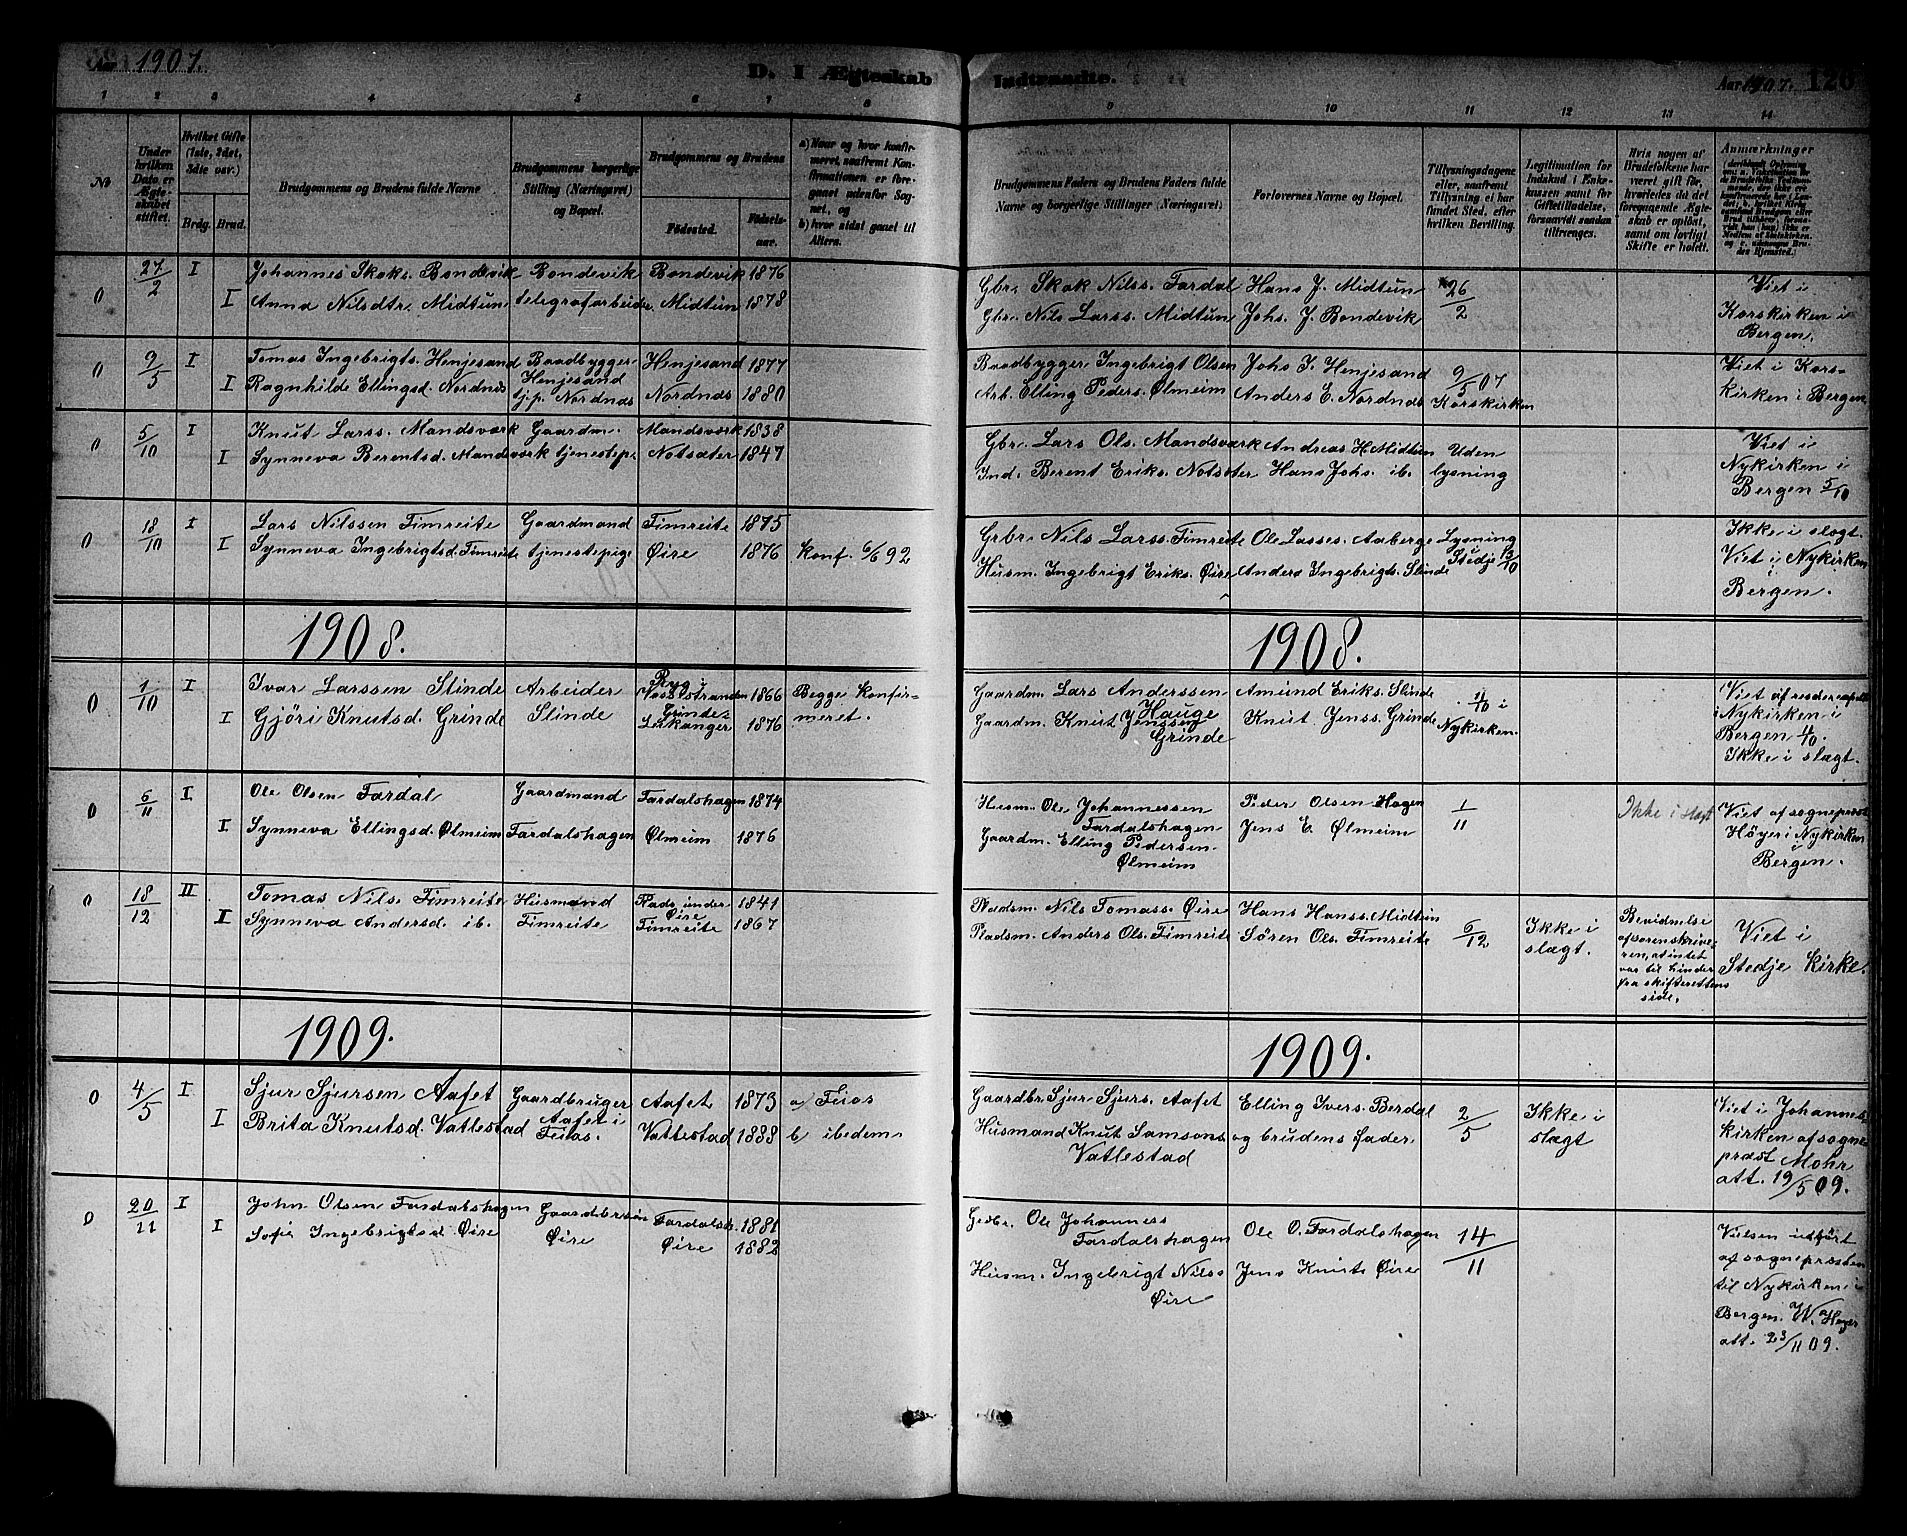 Aar 1907.
D. I Ægteskab
Indtraadte.
Aar 1907.
126
1 2 3 4 5 6 7 8
9 10 11 12 13 14
No
Under hvilken Dato er Ægteskabet stiftet.
Hvilket Gifte (1ste, 2det, 3die osv.)
Brdg. Brud.
Brudgommens og Brudens fulde Navne
Brudgommens borgerlige Stilling (Næringsvei) og Bopæl.
Brudgommens og Brudens
Fødested.
Fødselsaar.
a) Naar og hvor konfirmeret, saafremt Konfirmationen er foregaaet udenfor Sognet, og
b) hvor sidst gaaet til Alters.
Brudgommens Faders og Brudens Faders fulde Navne og borgerlige Stillinger (Næringsvei)
Forlovernes Navne og Bopæl.
Tillysningsdagene eller, saafremt Tillysning ei har fundet Sted, efter hvilken Bevilling.
Legitimation for Indskud i Enkekassen samt for Giftetilladelse, forsaavidt saadan tiltrænges.
Hvis nogen af Brudefolkene har været gift før, hvorledes da det foregaaende Ægteskab er opløst, samt om lovligt Skifte er holdt.
Anmærkninger
0 27/2 I Johannes Skaks. Bondevik Bondevik Bondevik 1876
I Anna Nilsdtr. Midtun telegrafarbeider Midtun 1878
Gbr. Skak Nilss. Fardal Hans J. Midtun 26/2 Viet i
Gbr. Nils Larss. Midtun Johs. J. Bondevik Korskirken i
Bergen.
0 9/5 I Tomas Ingebrigts. Henjesand Baadbygger Henjesand 1877
I Ragnhilde Ellingsd. Nordnæs Henjesand
tj.p. Nordnæs Nordnæs 1880
Baadbygger Ingebrigt Olsen Johs I. Henjesand 9/5 07 Viet i Kors-
Arb. Elling Peders. Ølmeim Anders E. Nordnæs Korskirken kirken i Bergen
0 5/10 I Knut Larss. Mandsværk Gaardm. Mandsværk 1838
I Synneva Berentsd. Mandsværk tjenestep. Notsæter 1847
Gbr. Lars Ols. Mandsværk Andreas H. Midtun Uden Viet i
Ind. Berent Eriks. Notsæter Hans Johs. ib. lysning Nykirken i
Bergen 5/10
0 18/10 I Lars Nilssen Fimreite Gaardmand Fimreite 1875
I Synneva Ingebrigtsd. Fimreite tjenestepige Øire 1876 Konf. 6/6 92
Grbr. Nils Larss. Fimreite Ole Lasses. Aaberge Lysning Ikke i slægt.
Husm. Ingebrigt Eriks. Øire Anders Ingebrigts. Slinde Stedje 13/10 Viet i Nykirken
i
Bergen.
1908.
1908.
0 1/10 I Ivar Larssen Slinde Arbeider Ryg i
Vossestranden 1866 Begge konfir-
I Gjöri Knutsd. Grinde Slinde Grinde-
Leikanger 1876 meret.
Gaardm. Lars Anderssen
Hauge Amund Eriks. Slinde 4/10 i Viet af
Gaardm. Knut Jenssen
Grinde Knut Jenss. Grinde Nykirken. i Nykirken i
Bergen 4/10.
Ikke i slægt.
0 6/11 I Ole Olsen Fardal Gaardmand Fardalshagen 1874
I Synneva Ellingsd. Ølmeim Fardalshagen Ølmeim 1876
Husm. Ole Johannessen
Fardalshagen Peder Olsen Hagen 1/11 Ikke i slægt Viet af sogneprest
Gaardm. Elling Pedersen
Ølmeim Jens E. Ølmeim Höyer i Nykirken
i
Bergen.
0 18/12 II Tomas Nils. Fimreite Husmand Plads under
Øire 1841
I Synneva Andersd. ib. Fimreite Fimreite 1867
Pladsm. Nils Tomass. Øire Hans Hanss. Midtun 6/12 Ikke i
slægt. Bevidnelse
af sorenskrive-
ren, at intet
var til hinder
fra skifterettens
side. Viet i
Pladsm. Anders Ols. Fimreite Sören Ols. Fimreite Stedje Kirke.
1909.
1909.
0 4/5 I Sjur Sjursen Aafet Gaardbruger Aafet 1873 a) Fios
I Brita Knutsd. Vatlestad Aafet i
Feios. Vatlestad 1888 b ibedem
Gaardbr. Sjur Sjurs. Aafet Elling Ivers. Berdal 2/5 Ikke i
slægt Viet i Johannes
Husmand Knut Samsons.
Vatlestad og brudens fader. kirken af sogne
præst Mohr
att. 19/5 09.
0 20/11 I John Olsen Fardalshagen Gaardbersøn Fardalsh. 1881
I Sofie Ingebrigtsd Øire Øire Øire 1882
Grdbr. Ole Johanness
Fardalshagen Ole O. Fardalshagen 14/11 Vielsen udfört
Husm. Ingebrigt Nilss
Øire Jens Knuts Øire af sognepræsten
til Nykirken i
Bergen. W. Høyer
att. 23/11 09.